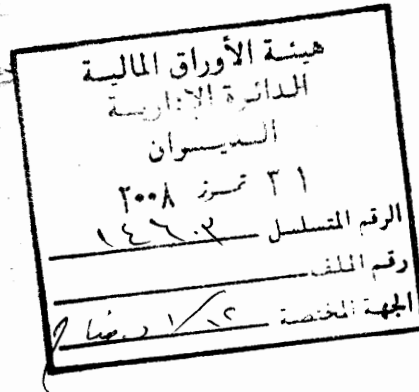 هيئة الأوراق المالية
الدائرة الإدارية
الديوان
٣١ تموز ٢٠٠٨
الرقم المتسلسل ١٤٦٠٣
رقم الملف
الجهة المختصة ١/١٢